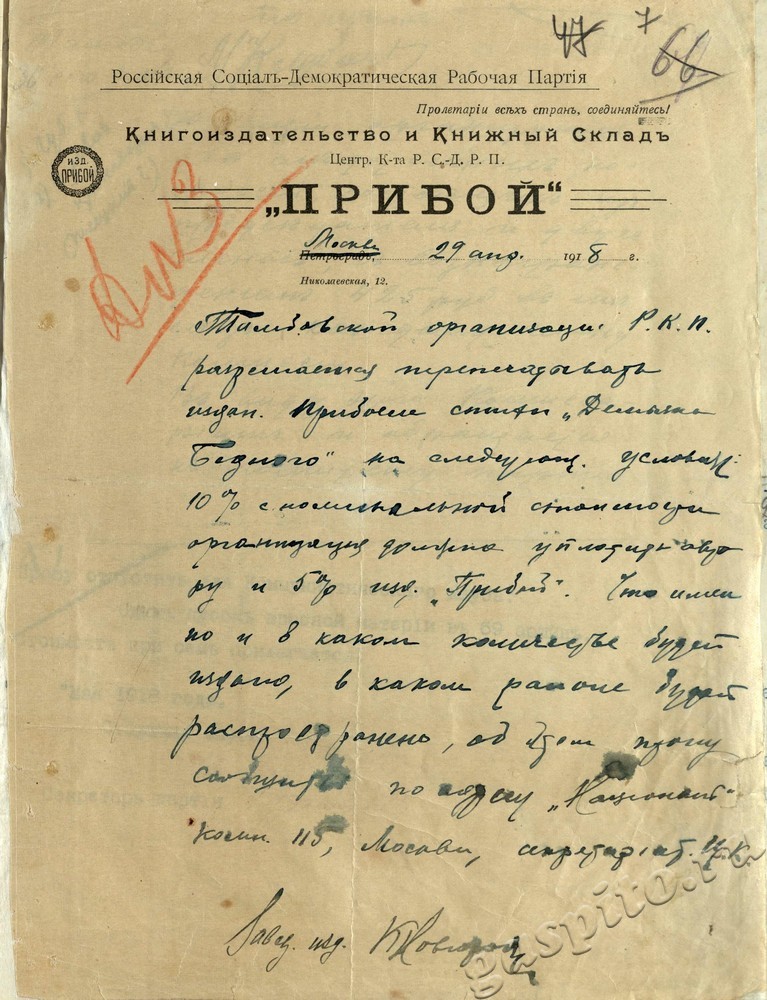 47 7 66
Россійская Соціалъ-Демократическая Рабочая Партія
Пролетаріи всѣхъ стран, соединяйтесь!
Книгоиздательство и Книжный Складъ
Центр. К-та Р. С.-Д. Р. П.
изд. ПРИБОЙ
„ПРИБОЙ“
Москва
Петроградъ, 29 апр. 1918 г.
Николаевская, 12.
Тамбовской организаци: Р.К.П.
разрешается перепечатывать
издан. Прибоем стихи „Демьяна
Бедного“ на следующ. условіях:
10% с номинальной стоимости
организация должна уплотить авто
ру и 5% изд. „Прибой“. Что имен
но и в каком количестве будет
издано, в каком районе будет
распространено, об этом прошу
сообщить по адресу „Націонал“
комн. 115, Москва, секретаріат. Ц.К.
Завед. изд.
gaspito.ru